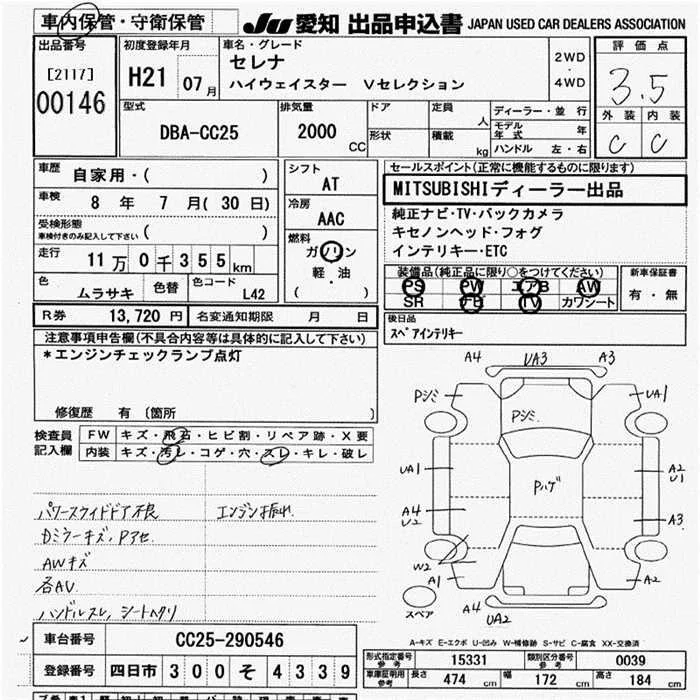 車内保管・守衛保管
JU 愛知 出品申込書 JAPAN USED CAR DEALERS ASSOCIATION
出品番号 初度登録年月 車名・グレード 評価点
[2117] H21 07月 セレナ 2WD
・
00146 ハイウェイスター Vセレクション 4WD 3.5
型式 排気量 ドア 定員 人 ディーラー・並行 外装 内装
DBA-CC25 2000 CC 形状 積載 kg モデル年式 年 C C
ハンドル 左・右
車歴 自家用・( ) シフト セールスポイント(正常に機能するものに限ります)
車検 8 年 7 月(30 日) AT MITSUBISHIディーラー出品
冷房 純正ナビ・TV・バックカメラ
受検形態 AAC キセノンヘッド・フォグ
車検付きのみ記入して下さい ( ) 燃料 インテリキー・ETC
走行 11万0千355km ガソリン 装備品(純正品に限り○をつけてください) 新車保証書
色 色替 色コード 軽・油 PS PW エアB AW 有・無
ムラサキ L42 ( ) SR TV カワシート
R券 13,720 円 名変通知期限 月 日 後日品
注意事項申告欄(不具合内容等は具体的に記入して下さい) スペアインテリキー
*エンジンチェックランプ点灯
修復歴 有 〔箇所 〕
検査員 FW キズ・飛石・ヒビ割・リペア跡・X要
記入欄 内装 キズ・汚レ・コゲ・穴・スレ・キレ・破レ
パワースライドドア不良 エンジン振れ
Dミラーキズ、Pアセ
AWキズ
各AV
ハンドルスレ、シートヘタリ
A4 UA3 A3
Pシミ Pシミ UA1
UA1 Pハゲ A2
U1
A4
U2 A3
W2
A1 A2
スペア A4 UA2
A-キズ E-エクボ U-凹み W-補修跡 S-サビ C-腐食 XX-交換済
車台番号 CC25-290546
登録番号 四日市 300 そ 4339
形式指定番号 参考 15331 類別区分番号 参考 0039
車庫証明用 参考 長さ 474 cm 幅 172 cm 高さ 184 cm